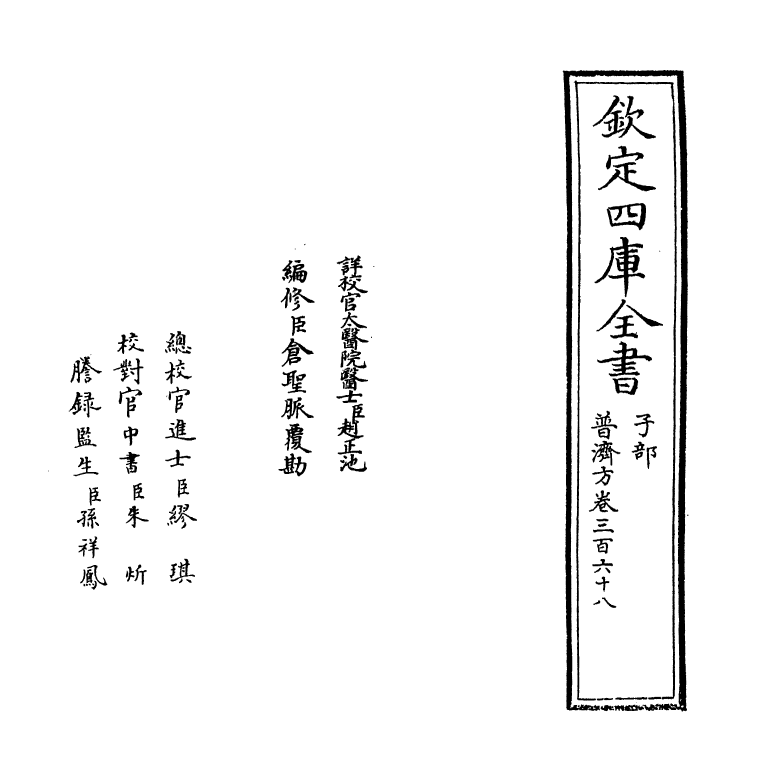 欽定四庫全書
子部
普濟方卷三百六十八
詳校官太醫院醫士臣趙正池
編修臣倉聖脈覆勘
總校官進士臣繆琪
校對官中書臣朱炘
謄録監生臣孫祥鳳